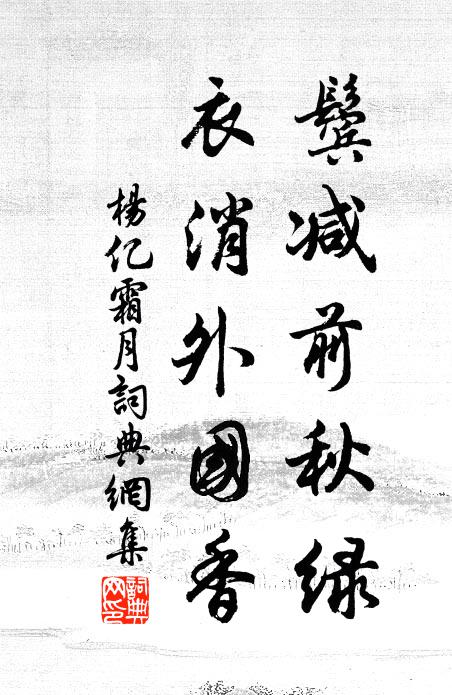 鬓减前秋绿
衣消外國香
楊亿霜月詞典網集
詞典网印